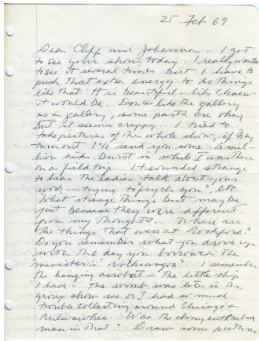 25 Feb 69
Dear Cliff and Johanna. I got
to see your show today. I really wanted
to see it several times but I have to
push that extra energy to do things
like that. It is beautiful - like I knew
it would be. Don't like the gallery
as a gallery, some parts are okay
but it seems crappy. I tried to
take pictures of the whole show, if they
turn out I'll send you some. A
kids burst in while I was there
on a field trip. It sounded strange
to hear the ladies talk about your
work - trying to psyche you", etc.
What strange things but maybe
just because they are different
from my thoughts. Where are
the things that were at Rockford?
Do you remember what you drove up
with the day you borrowed the
minister's Volkswagon? I remember
the hanging acrobat - the little ship
I have - The womb was later in the
group show we or I had so much
trouble collecting around Chicago &
Milwaukee. Was the ebony
man in that? Draw some pictures